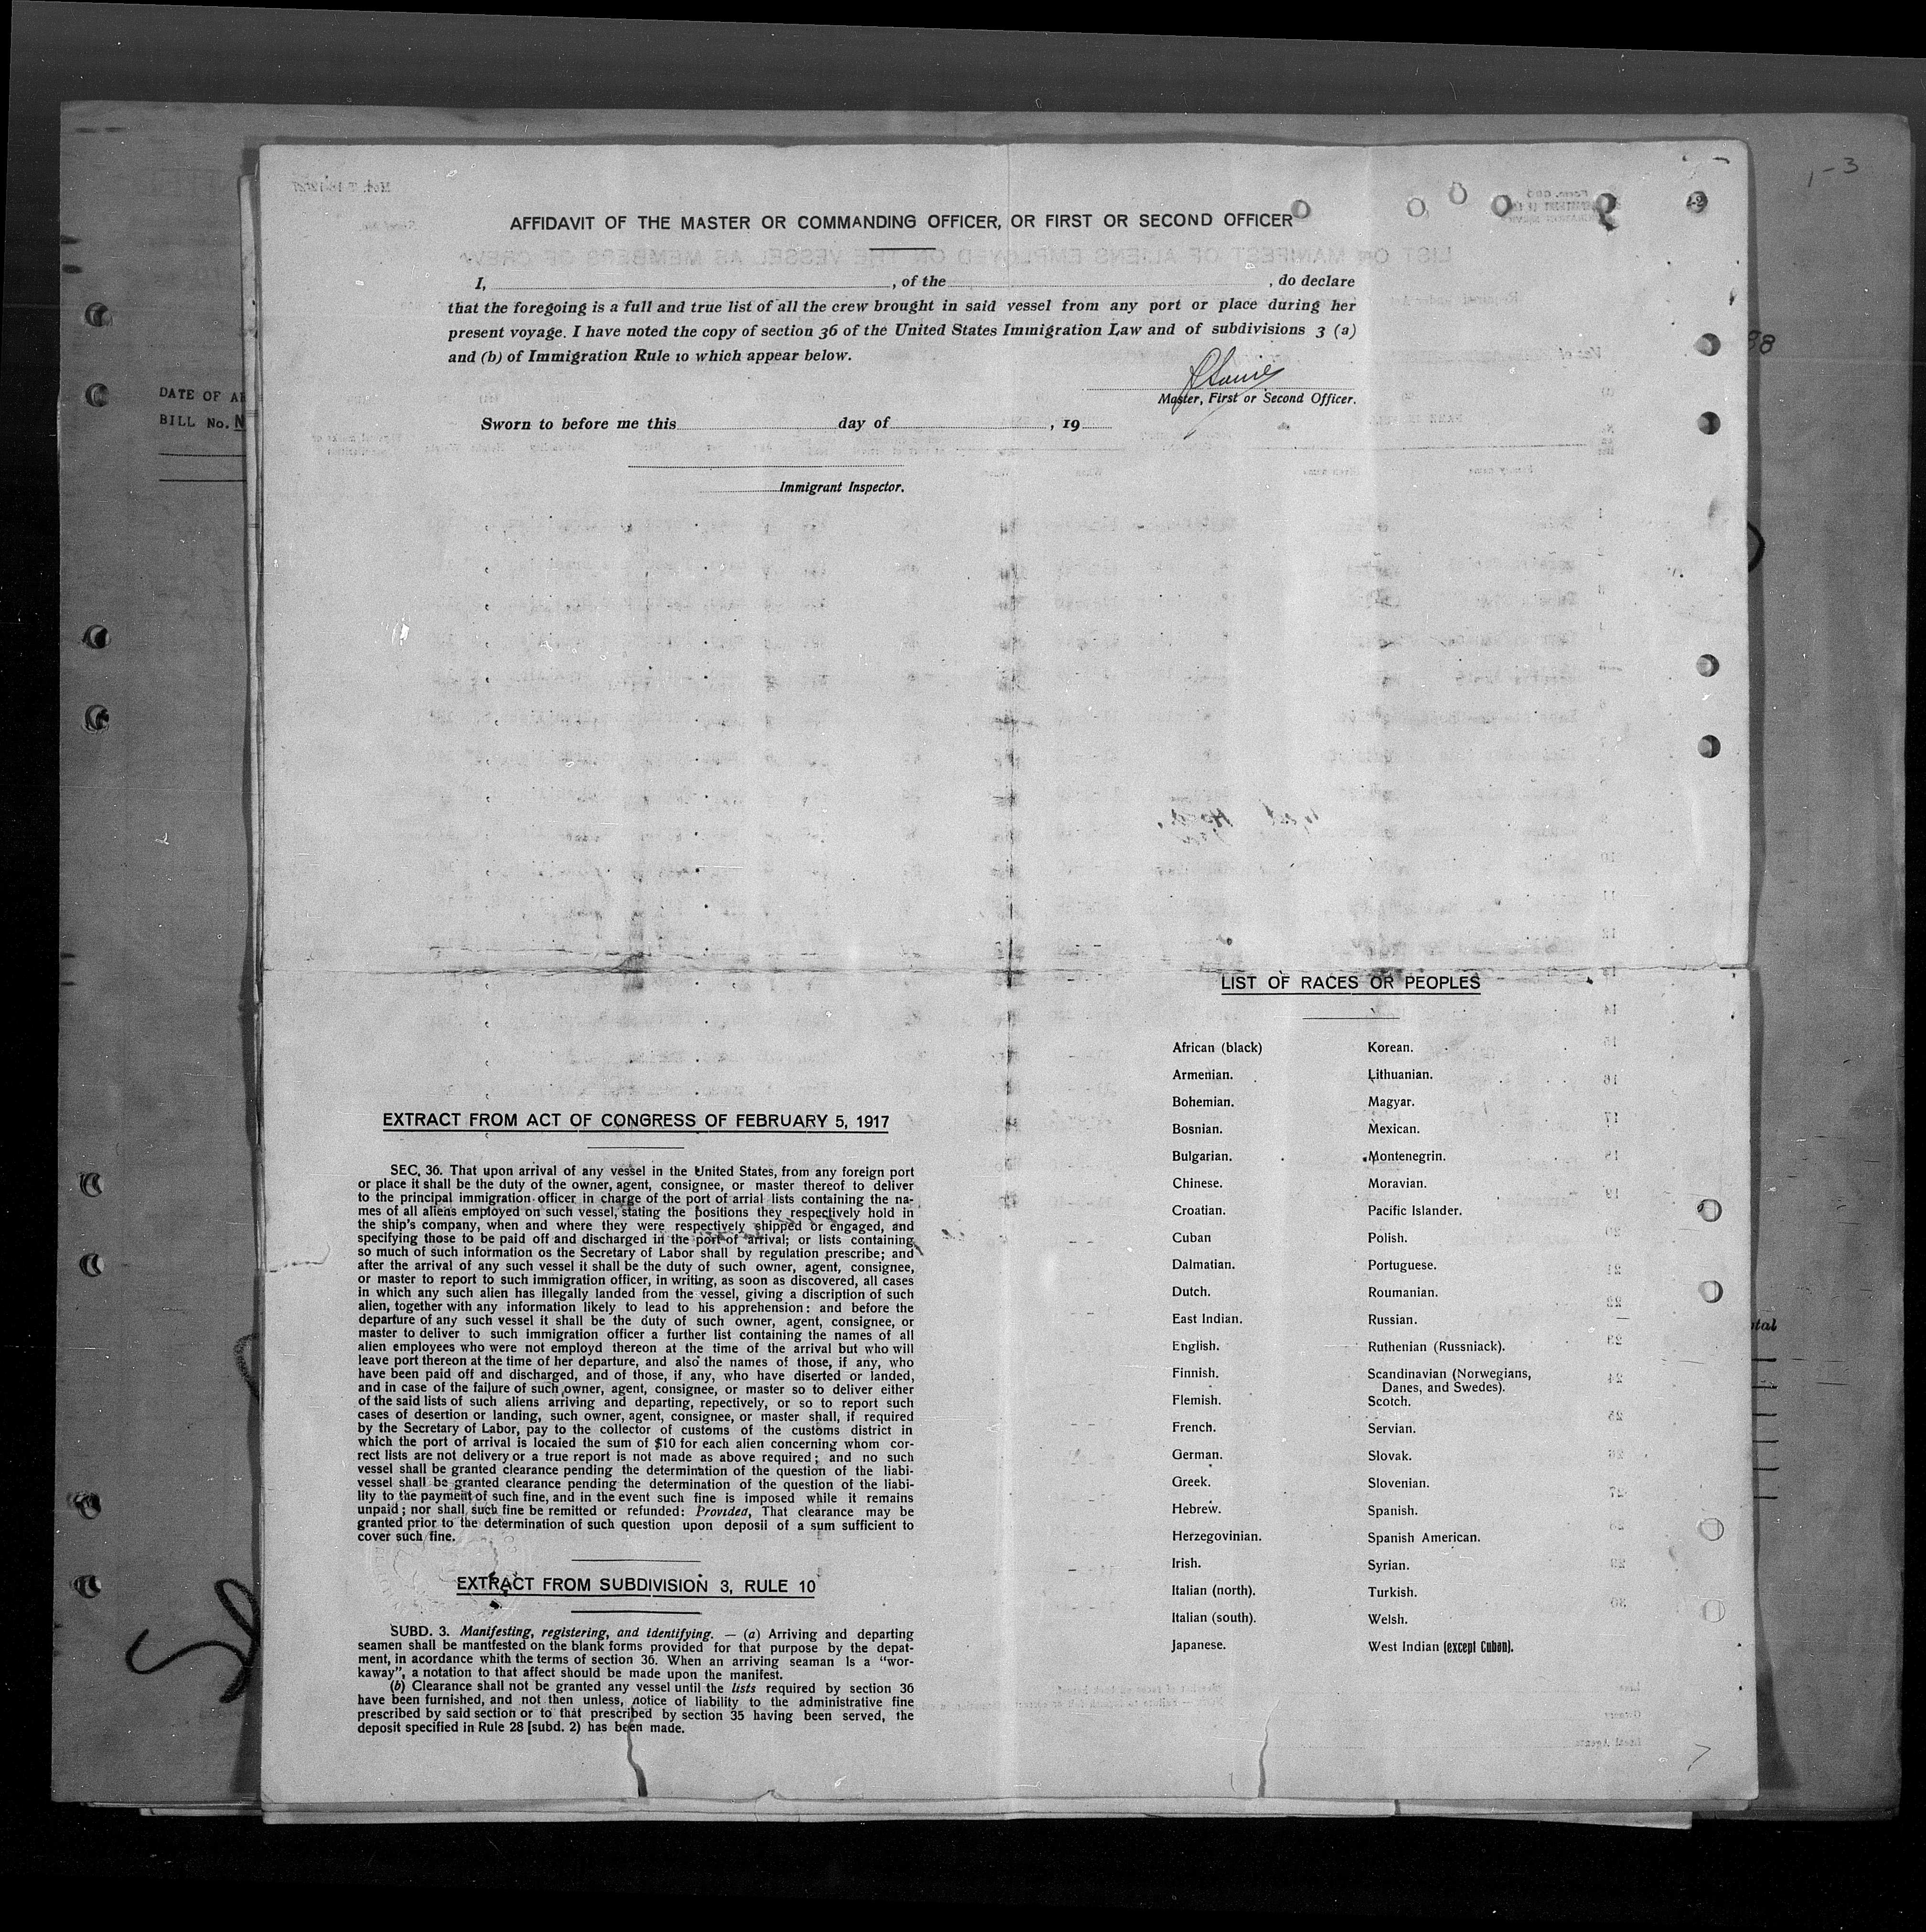 1-3
AFFIDAVIT OF THE MASTER OR COMMANDING OFFICER, OR FIRST OR SECOND OFFICER
I, , of the , do declare
that the foregoing is a full and true list of all the crew brought in said vessel from any port or place during her
present voyage. I have noted the copy of section 36 of the United States Immigration Law and of subdivisions 3 (a)
and (b) of Immigration Rule 10 which appear below.
Master, First or Second Officer.
Sworn to before me this day of , 19
Immigrant Inspector.
DATE OF
BILL No. N
LIST OF RACES OR PEOPLES
African (black) Korean.
Armenian. Lithuanian.
Bohemian. Magyar.
Bosnian. Mexican.
Bulgarian. Montenegrin.
Chinese. Moravian.
Croatian. Pacific Islander.
Cuban Polish.
Dalmatian. Portuguese.
Dutch. Roumanian.
East Indian. Russian.
English. Ruthenian (Russniack).
Finnish. Scandinavian (Norwegians,
Danes, and Swedes).
Flemish. Scotch.
French. Servian.
German. Slovak.
Greek. Slovenian.
Hebrew. Spanish.
Herzegovinian. Spanish American.
Irish. Syrian.
Italian (north). Turkish.
Italian (south). Welsh.
Japanese. West Indian (except Cuban).
EXTRACT FROM ACT OF CONGRESS OF FEBRUARY 5, 1917
SEC. 36. That upon arrival of any vessel in the United States, from any foreign port
or place it shall be the duty of the owner, agent, consignee, or master thereof to deliver
to the principal immigration officer in charge of the port of arrial lists containing the na-
mes of all aliens employed on such vessel, stating the positions they respectively hold in
the ship's company, when and where they were respectively shipped or engaged, and
specifying those to be paid off and discharged in the port of arrival; or lists containing
so much of such information os the Secretary of Labor shall by regulation prescribe; and
after the arrival of any such vessel it shall be the duty of such owner, agent, consignee,
or master to report to such immigration officer, in writing, as soon as discovered, all cases
in which any such alien has illegally landed from the vessel, giving a discription of such
alien, together with any information likely to lead to his apprehension: and before the
departure of any such vessel it shall be the duty of such owner, agent, consignee, or
master to deliver to such immigration officer a further list containing the names of all
alien employees who were not employd thereon at the time of the arrival but who will
leave port thereon at the time of her departure, and also the names of those, if any, who
have been paid off and discharged, and of those, if any, who have diserted or landed,
and in case of the failure of such owner, agent, consignee, or master so to deliver either
of the said lists of such aliens arriving and departing, repectively, or so to report such
cases of desertion or landing, such owner, agent, consignee, or master shall, if required
by the Secretary of Labor, pay to the collector of customs of the customs district in
which the port of arrival is locaied the sum of $10 for each alien concerning whom cor-
rect lists are not delivery or a true report is not made as above required; and no such
vessel shall be granted clearance pending the determination of the question of the liabi-
vessel shall be granted clearance pending the determination of the question of the liabi-
lity to the payment of such fine, and in the event such fine is imposed while it remains
unpaid; nor shall such fine be remitted or refunded: Provided, That clearance may be
granted prior to the determination of such question upon deposii of a sum sufficient to
cover such fine.
EXTRACT FROM SUBDIVISION 3, RULE 10
SUBD. 3. Manifesting, registering, and identifying. — (a) Arriving and departing
seamen shall be mantfested on the blank forms provided for that purpose by the depat-
ment, in acordance whith the terms of section 36. When an arriving seaman Is a "wor-
kaway", a notation to that affect should be made upon the manifest.
(b) Clearance shall not be granted any vessel until the lists required by section 36
have been furnished, and not then unless, notice of liability to the administrative fine
prescribed by said section or to that prescribed by section 35 having been served, the
deposit specified in Rule 28 [subd. 2) has been made.